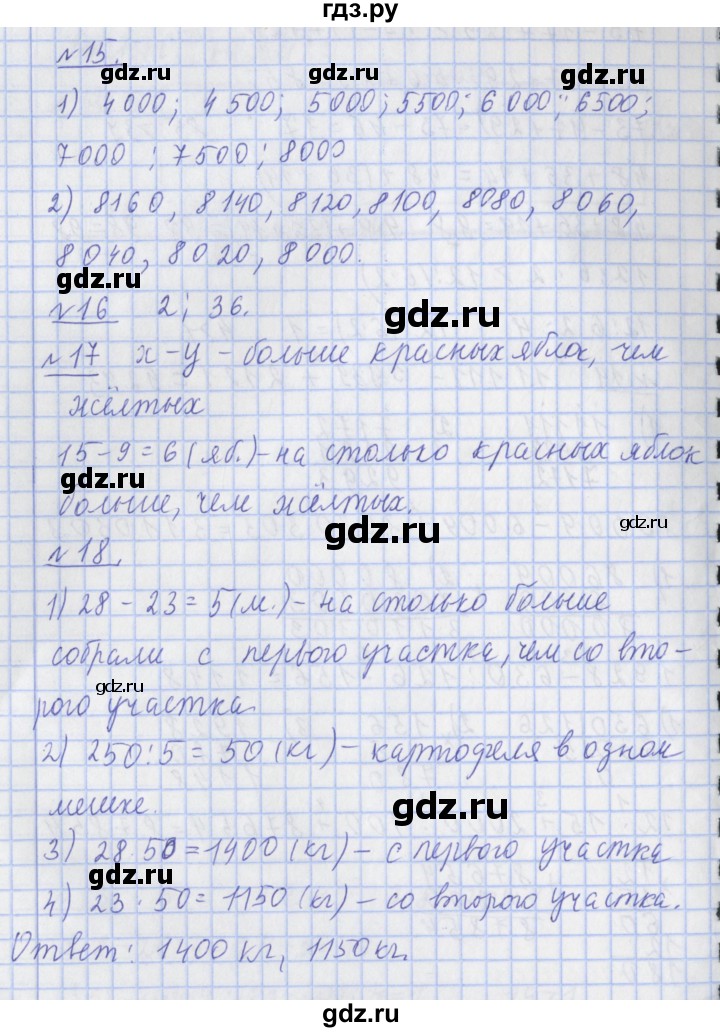 гдз.ру
№15.
gdz.ru gdz.ru
1) 4000; 4500; 5000; 5500; 6000; 6500;
7000; 7500; 8000
2) 8160, 8140, 8120, 8100, 8080, 8060,
8040, 8020, 8000.
gdz.ru
№16 2; 36.
gdz.ru
№17 х-у - больше красных яблок, чем
жёлтых
15-9=6(яб.)-на столько красных яблок
gdz.ru
больше, чем жёлтых.
gdz.ru gdz.ru
№18.
1) 28-23=5(м.)-на столько больше
собрали с первого участка, чем со вто-
gdz.ru
рого участка.
2) 250:5=50(кг)-картофеля в одном
мешке.
gdz.ru
3) 28·50=1400(кг)-с первого участка
gdz.ru
4) 23·50=1150(кг)-со второго участка.
Ответ: 1400 кг, 1150 кг.
gdz.ru